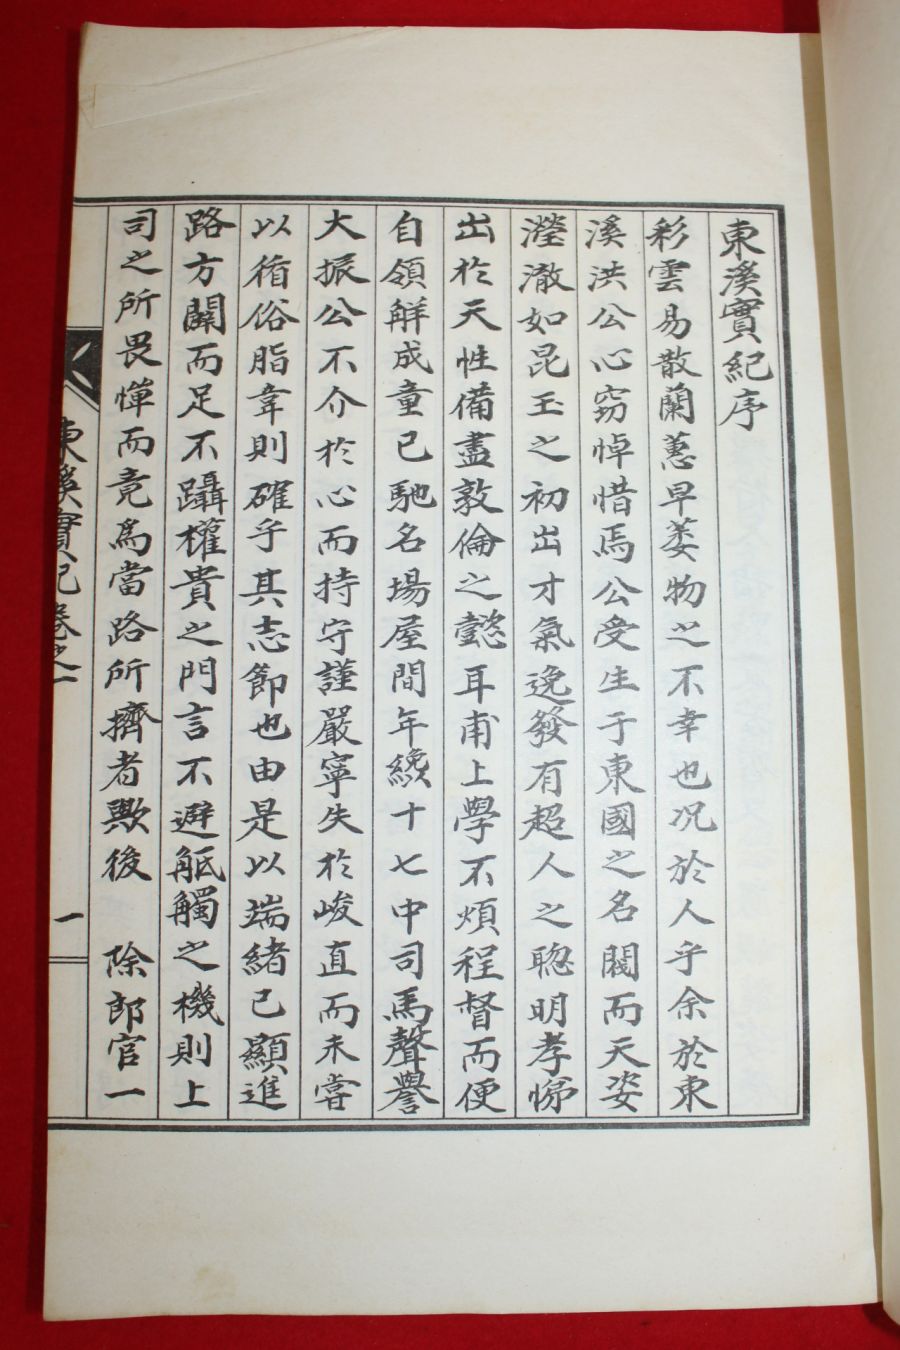 東溪實紀序
彩雲易散蘭蕙早萎物之不幸也况於人乎余於東
溪洪公心竊悼惜焉公受生于東國之名閥而天姿
瀅澈如昆玉之初出才氣逸發有超人之聦明孝悌
出於天性備盡敦倫之懿耳甫上學不煩程督而便
自領觧成童已馳名塲屋間年纔十七中司馬聲譽
大振公不介於心而持守謹嚴寧失於峻直而未嘗
以循俗脂韋則確乎其志節也由是以端緒已顯進
路方闢而足不躡權貴之門言不避觝觸之機則上
司之所畏憚而竟爲當路所擠者歟後 除郎官一
東溪實紀卷之一
一